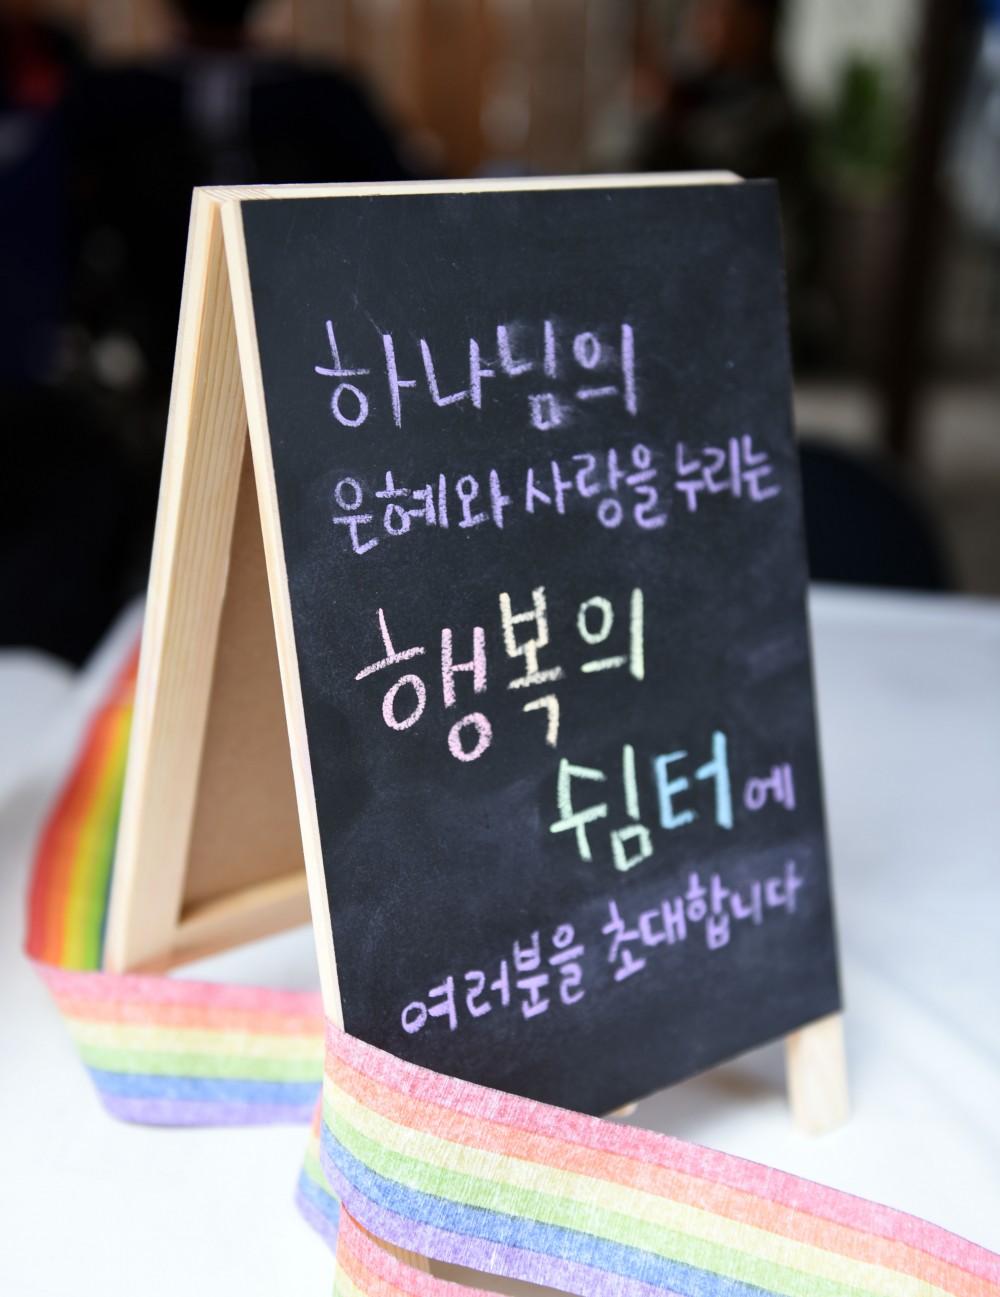 하나님의
은혜와 사랑을 누리는
행복의
쉼터에
여러분을 초대합니다